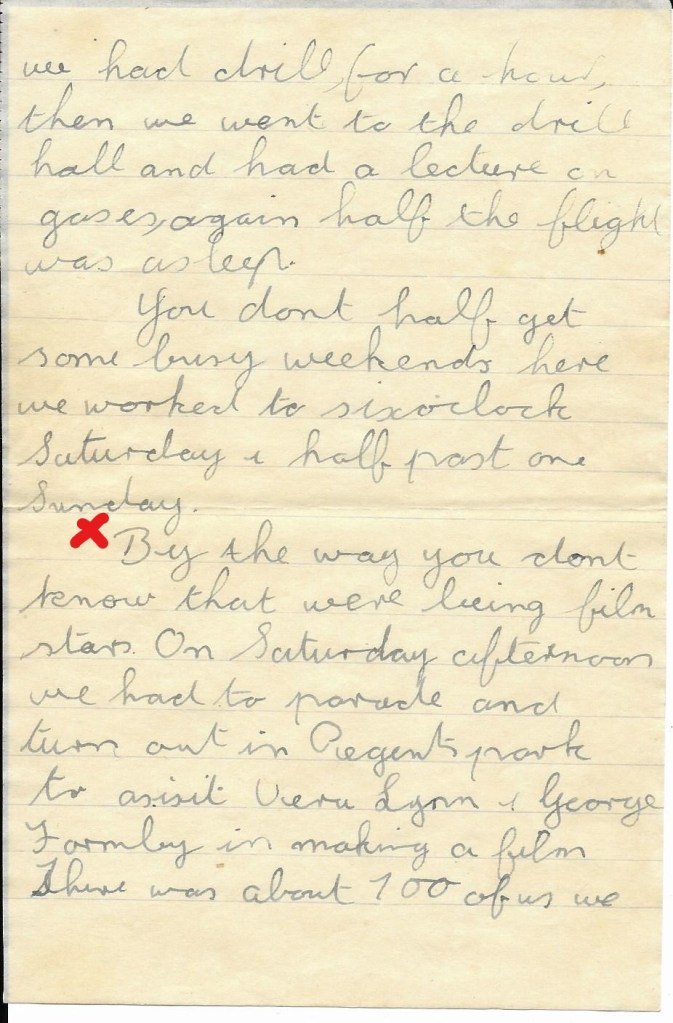 we had drill, for a hour,
then we went to the drill
hall and had a lecture on
gases, again half the flight
was asleep.
You dont half get
some busy weekends here
we worked to sixoclock
Saturday & half past one
Sunday.
By the way you dont
know that were being film
stars. On Saturday afternoon
we had to parade and
turn out in Regents park
to asisit Vera Lynn & George
Formby in making a film
There was about 100 of us we